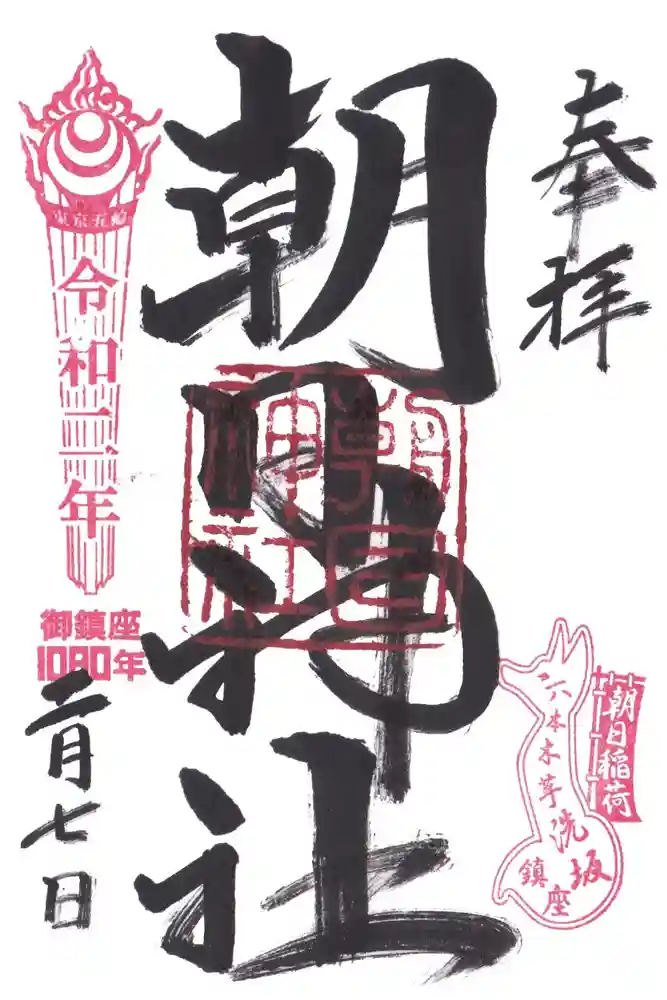 奉拝
朝日神社
朝日神社
令和二年
御鎮座
1080年
二月七日
朝日稲荷
六本木芋洗坂
鎮座